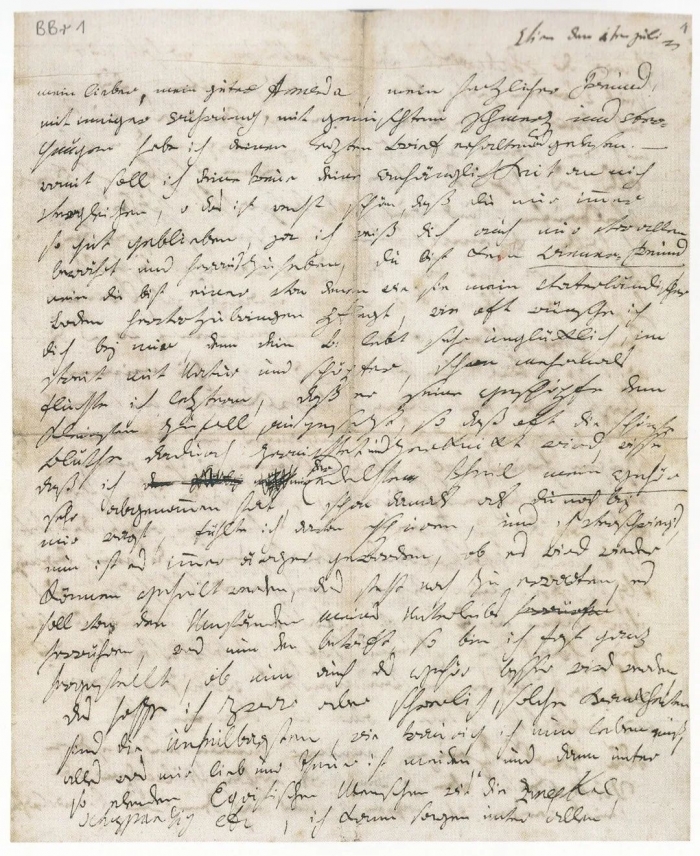 BBr 1
1
Wien den 1ten juli
mein lieber, mein guter Amenda, mein herzlicher Freund,
mit inniger Rührung, mit gemischtem Schmerz und Ver-
gnügen habe ich deinen letzten Brief erhalten und gelesen. —
womit soll ich deine Treue deine Anhänglichkeit an mich
vergleichen, o das ist recht schön, daß du mir immer
so gut geblieben, ja ich weiß dich auch mir vor allen
bewährt und herauszuheben, du bist kein Wiener Freund
nein du bist einer von denen wie sie mein Vaterländischer
Boden hervorzubringen pflegt, wie oft wünsche ich
dich bey mir, denn dein B. lebt sehr unglücklich, im
streit mit Natur und schöpfer, schon mehrmals
fluchte ich leztern, daß er seine geschöpfe dem
kleinsten Zufall ausgesezt, so daß oft die schönste
Blüthe dadurch zernichtet und zerknickt wird, wisse
daß ich der edelste Theil mein Gehör
sehr abgenommen hat, schon damals als du noch bey
mir warst, fühlte ich davon spuren, und ich verschwieg's,
nun ist es immer ärger geworden, ob es wird wieder
können geheilt werden, das steht noch zu erwarten, es
soll von den Umständen meines Unterleibs
herrühren, was nun den betrift so bin ich fast ganz
hergestellt, ob nun auch das gehör besser wird werden,
das hoffe ich zwar aber schwerlich, solche Krankheiten
sind die unheilbarsten, wie traurig ich nun leben muß,
alles was mir lieb und theuer ist meiden und dann unter
so elenden Egoistischen Menschen wie die Zmeskal,
Schuppanzig etc, ich kann sagen unter allen